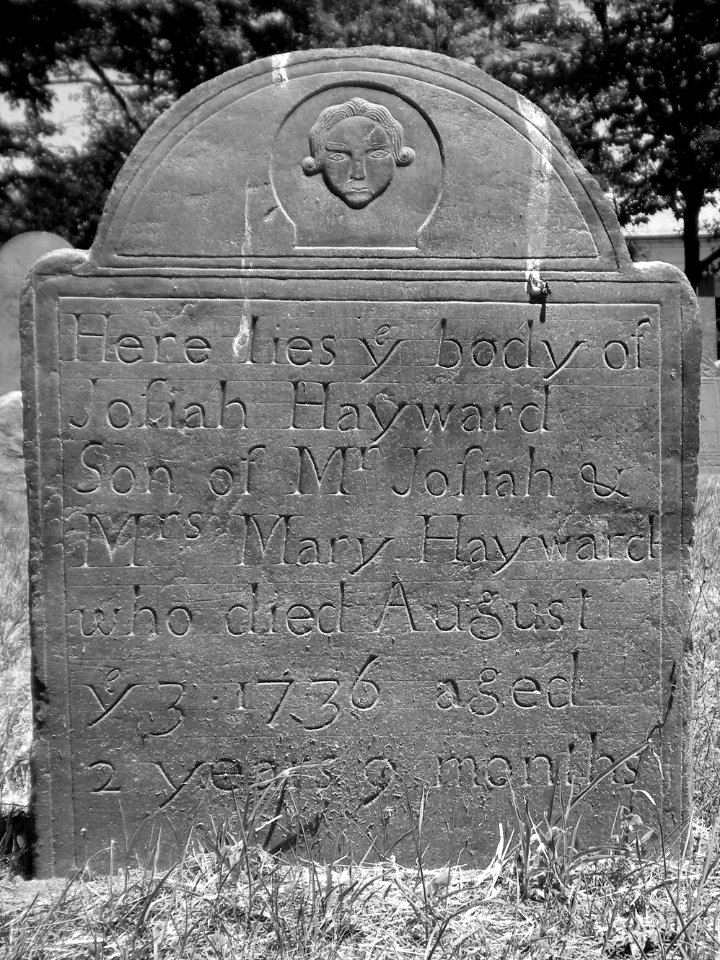 Here lies yͤ body of
Joſiah Hayward
Son of Mʳ Joſiah &
Mʳˢ Mary Hayward
who died August
yͤ 3 · 1736 aged
2 years 9 months